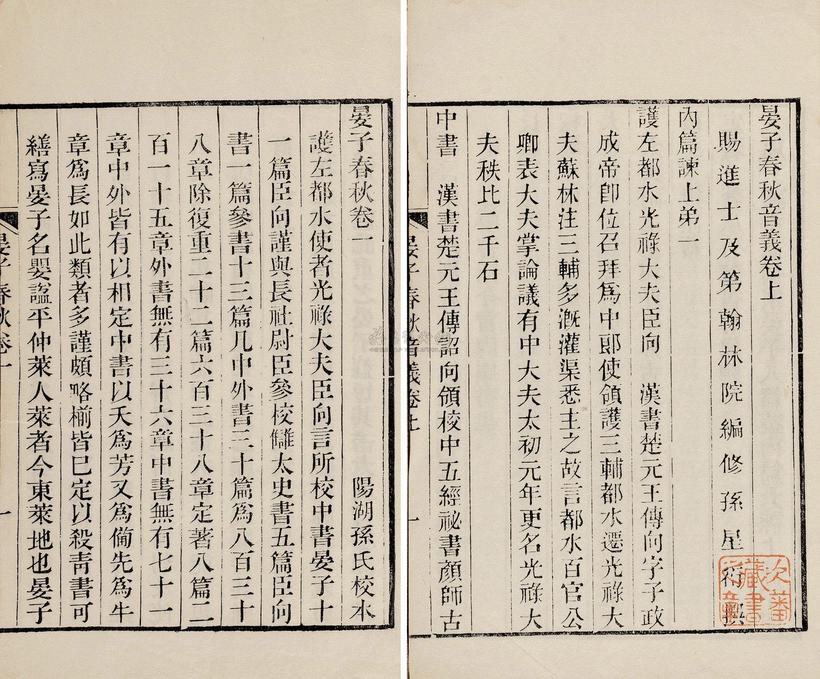 晏子春秋音義卷上
賜進士及第翰林院編修孫星衍撰
內篇諫上弟一
護左都水光祿大夫臣向　漢書楚元王傳向字子政
成帝卽位召拜爲中郎使領護三輔都水遷光祿大
夫蘇林注三輔多漑灌渠悉主之故言都水百官公
卿表大夫掌論議有中大夫太初元年更名光祿大
夫秩比二千石
中書　漢書楚元王傳詔向領校中五經祕書顏師古
晏子春秋音義卷上
一
晏子春秋卷一　陽湖孫氏校本
護左都水使者光祿大夫臣向言所校中書晏子十
一篇臣向謹與長社尉臣參校讎太史書五篇臣向
書一篇參書十三篇凡中外書三十篇爲八百三十
八章除復重二十二篇六百三十八章定著八篇二
百一十五章外書無有三十六章中書無有七十一
章中外皆有以相定中書以夭爲芳又爲備先爲牛
章爲長如此類者多謹頗略椾皆已定以殺靑書可
繕寫晏子名嬰謚平仲萊人萊者今東萊地也晏子
晏子春秋卷一
一